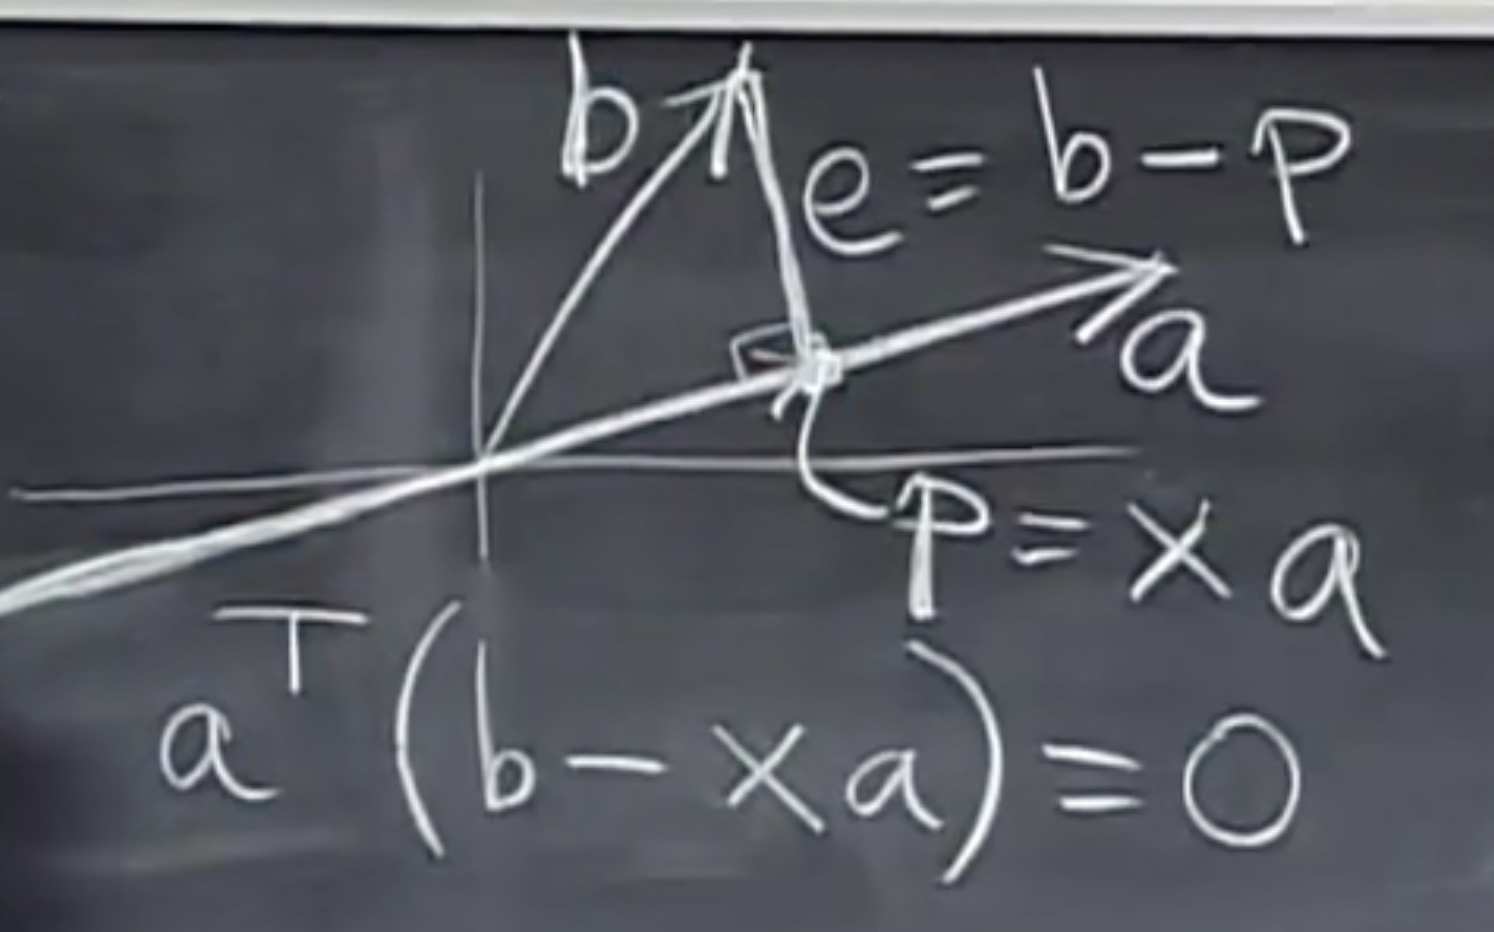 b
e = b - p
a
p = x a
a^T (b - x a) = 0